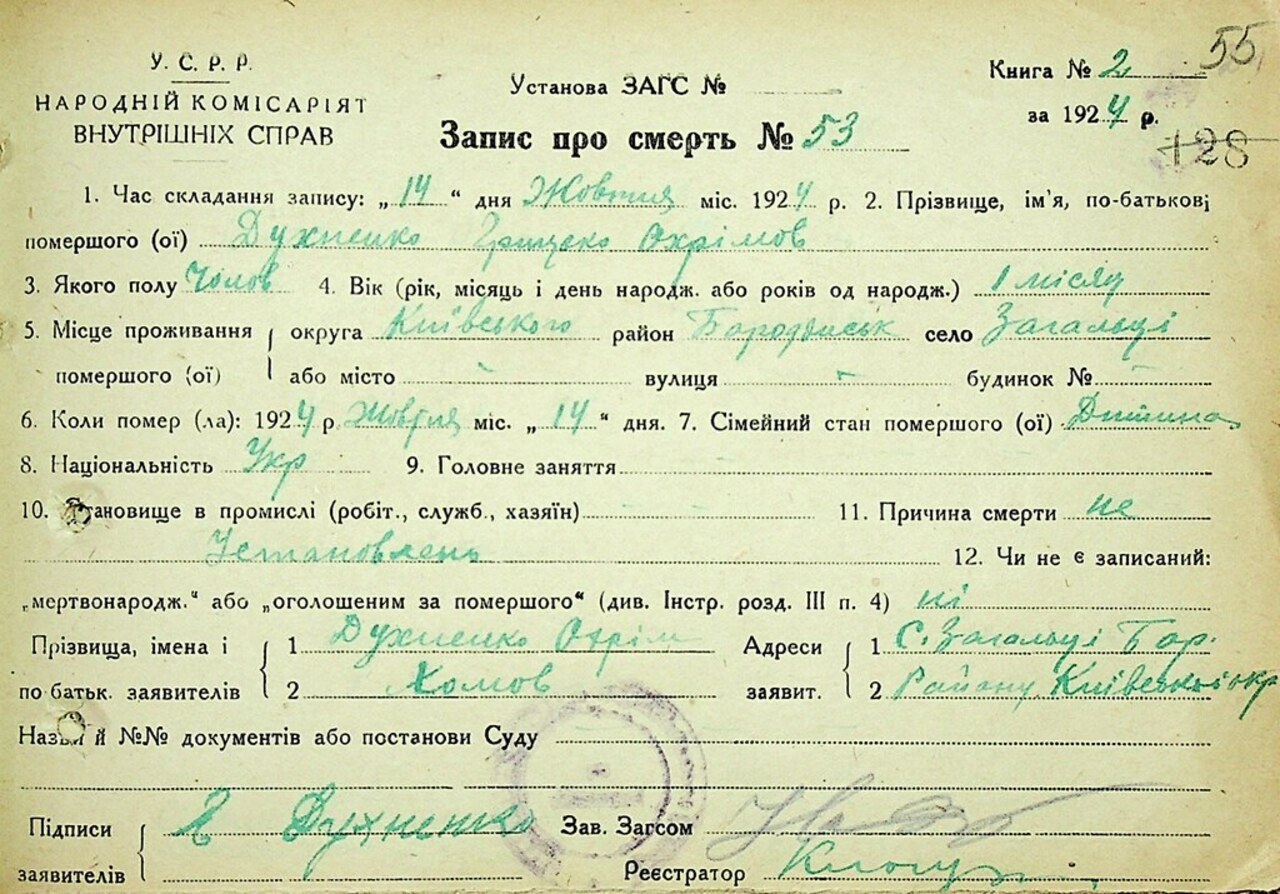 55
У. С. Р. Р.
НАРОДНІЙ КОМІСАРІЯТ
ВНУТРІШНІХ СПРАВ
Установа ЗАГС №
Книга № 2
за 1924 р.
128
Запис про смерть № 53
1. Час складання запису: „14“ дня Жовтня міс. 1924 р. 2. Прізвище, ім'я, по-батькові
помершого (ої) Духненко Грицько Охрімов
3. Якого полу Чолов 4. Вік (рік, місяць і день народж. або років од народж.) 1 місяц
5. Місце проживання округа Київського район Бородянськ село Загальці
помершого (ої) або місто - вулиця - будинок № -
6. Коли помер (ла): 1924 р Жовтня міс. „14“ дня. 7. Сімейний стан помершого (ої) Дитина
8. Національність Укр 9. Головне заняття
10. Становище в промислі (робіт., служб., хазяїн) 11. Причина смерти не
Установлень 12. Чи не є записаний:
„мертвонародж.“ або „оголошеним за помершого“ (див. Інстр. розд. III п. 4) ні
Прізвища, імена і 1 Духненко Охрім Адреси 1 С. Загальці Бор.
по батьк. заявителів 2 Хомов заявит. 2 Району Київської окр
Назви й №№ документів або постанови Суду
Підписи Духненко Зав. Загсом
заявителів Реєстратор